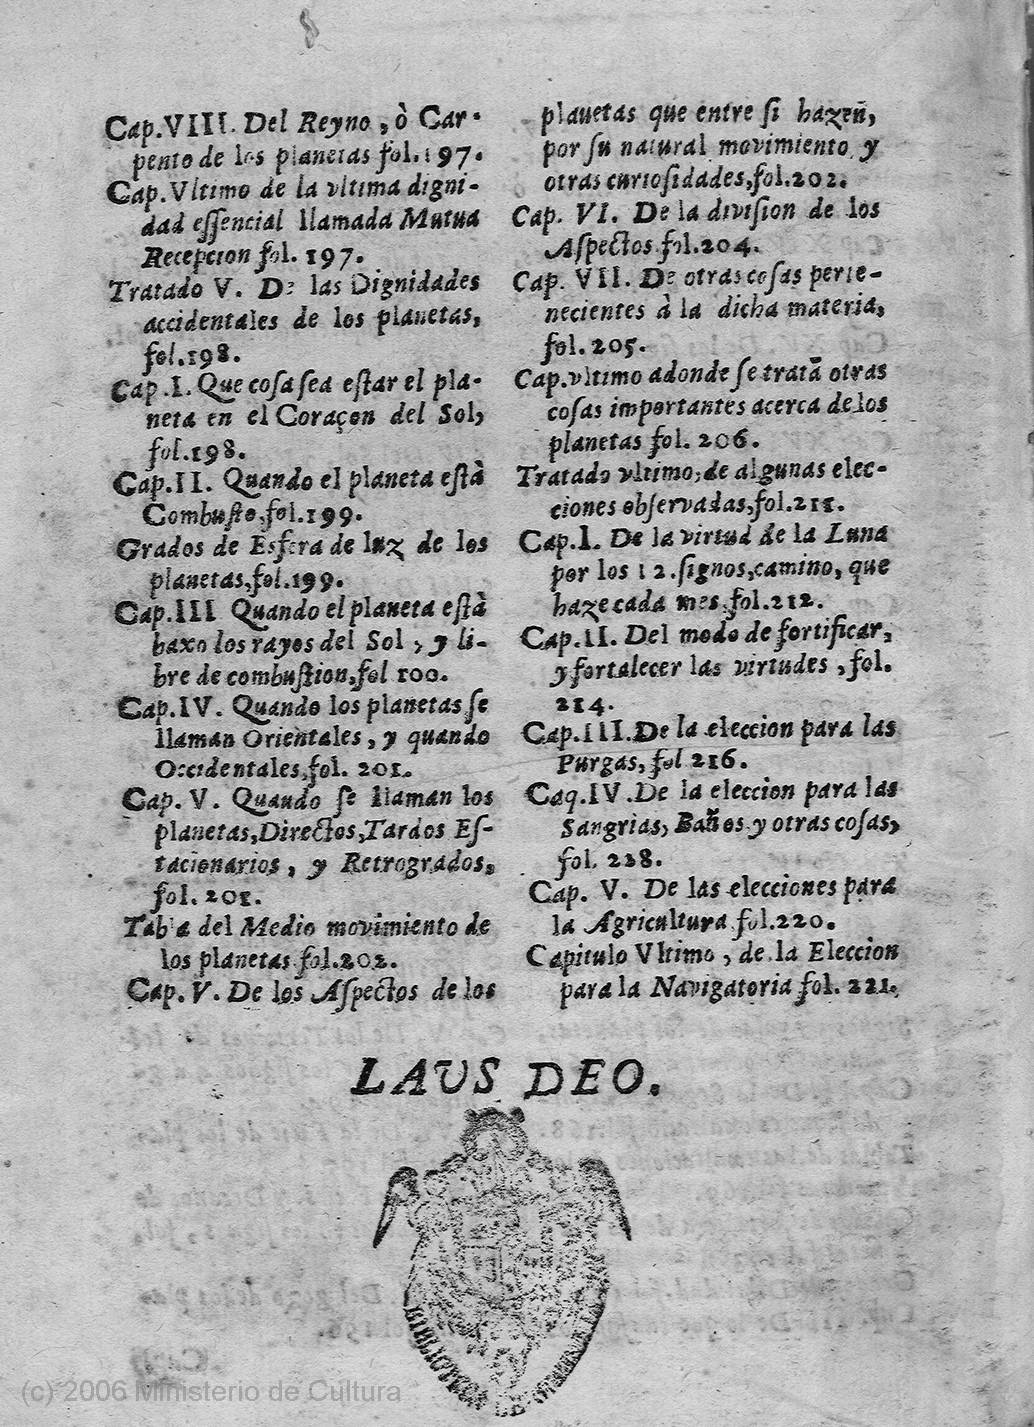 Cap.VIII. Del Reyno, ò Car-
pento de los planetas fol.197.
Cap.Vltimo de la vltima digni-
dad eſſencial llamada Mutua
Recepcion fol. 197.
Tratado V. De las Dignidades
accidentales de los planetas,
fol.198.
Cap.I. Que coſa ſea eſtar el pla-
neta en el Coraçon del Sol,
fol.198.
Cap.II. Quando el planeta eſtà
Combuſto,fol.199.
Grados de Esfera de luz de los
planetas,fol.199.
Cap.III Quando el planeta eſtà
baxo los rayos del Sol, y li-
bre de combuſtion,fol 100.
Cap.IV. Quando los planetas ſe
llaman Orientales, y quando
Occidentales,fol. 201.
Cap. V. Quando ſe llaman los
planetas,Directos,Tardos Eſ-
tacionarios, y Retrogrados,
fol. 201.
Tabla del Medio movimiento de
los planetas fol.202.
Cap. V. De los Aſpectos de los
planetas que entre ſi hazeñ,
por ſu natural movimiento y
otras curioſidades,fol.202.
Cap. VI. De la diviſion de los
Aſpectos fol.204.
Cap. VII. De otras coſas perte-
necientes à la dicha materia,
fol.205.
Cap.vltimo adonde ſe tratã otras
coſas importantes acerca de los
planetas fol. 206.
Tratado vltimo,de algunas elec-
ciones obſervadas,fol.211.
Cap.I. De la virtud de la Luna
por los 12.ſignos,camino, que
haze cada mes,fol.212.
Cap.II. Del modo de fortificar,
y fortalecer las virtudes, fol.
214.
Cap.III.De la eleccion para las
Purgas, fol 216.
Caq.IV.De la eleccion para las
Sangrias, Baños y otras coſas,
fol. 218.
Cap. V. De las elecciones para
la Agricultura fol.220.
Capitulo Vltimo, de la Eleccion
para la Navigatoria fol. 221.
LAUS DEO.
BIBLIOTECA DE
(c) 2006 Ministerio de Cultura